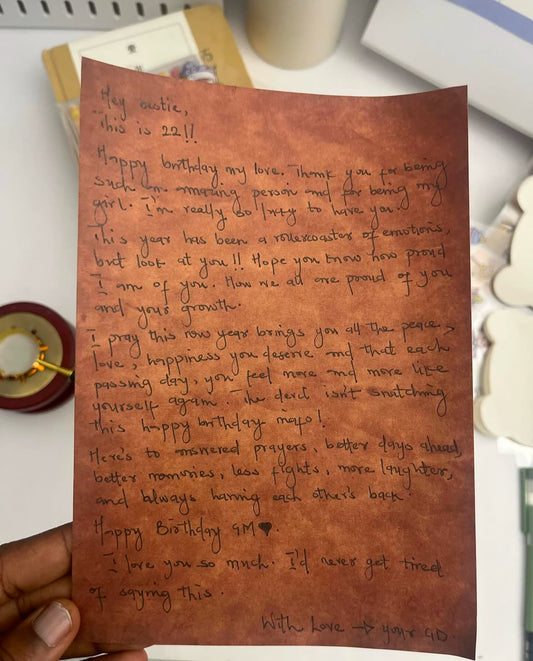 Hey bestie,
This is 22!!
Happy birthday my love. Thank you for being
such an amazing person and for being my
girl. I'm really so lucky to have you.
This year has been a rollercoaster of emotions,
but look at you!! Hope you know how proud
I am of you. How we all are proud of you
and your growth.
I pray this new year brings you all the peace,
love, happiness you deserve and that each
passing day, you feel more and more like
yourself again. The devil isn't snatching
this happy birthday
Here's to answered prayers, better days ahead,
better memories, less fights, more laughter,
and always having each other's back.
Happy Birthday GM♥.
I love you so much. I'd never get tired
of saying this.
With Love → your GD.